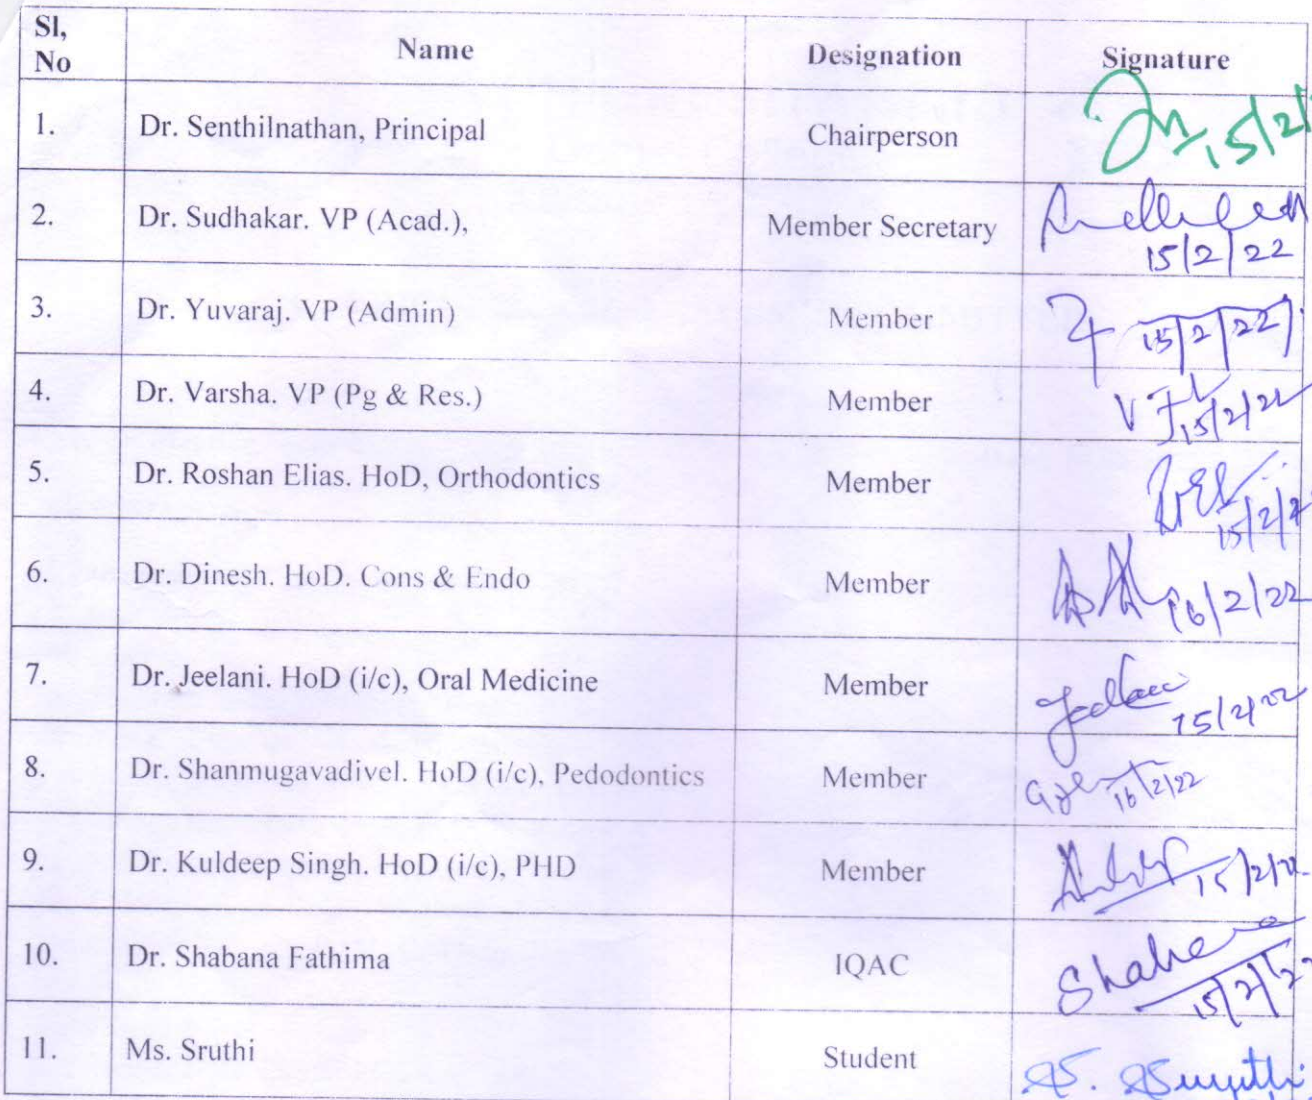 Sl, No Name Designation Signature
1. Dr. Senthilnathan, Principal Chairperson 15/2/
2. Dr. Sudhakar. VP (Acad.), Member Secretary
15/2/22
3. Dr. Yuvaraj. VP (Admin) Member 15/2/22
4. Dr. Varsha. VP (Pg & Res.) Member 15/2/22
5. Dr. Roshan Elias. HoD, Orthodontics Member
15/2/2
6. Dr. Dinesh. HoD. Cons & Endo Member 16/2/22
7. Dr. Jeelani. HoD (i/c), Oral Medicine Member
15/2/22
8. Dr. Shanmugavadivel. HoD (i/c), Pedodontics Member 16/2/22
9. Dr. Kuldeep Singh. HoD (i/c), PHD Member 15/2/22
10. Dr. Shabana Fathima IQAC
15/2/2
11. Ms. Sruthi Student